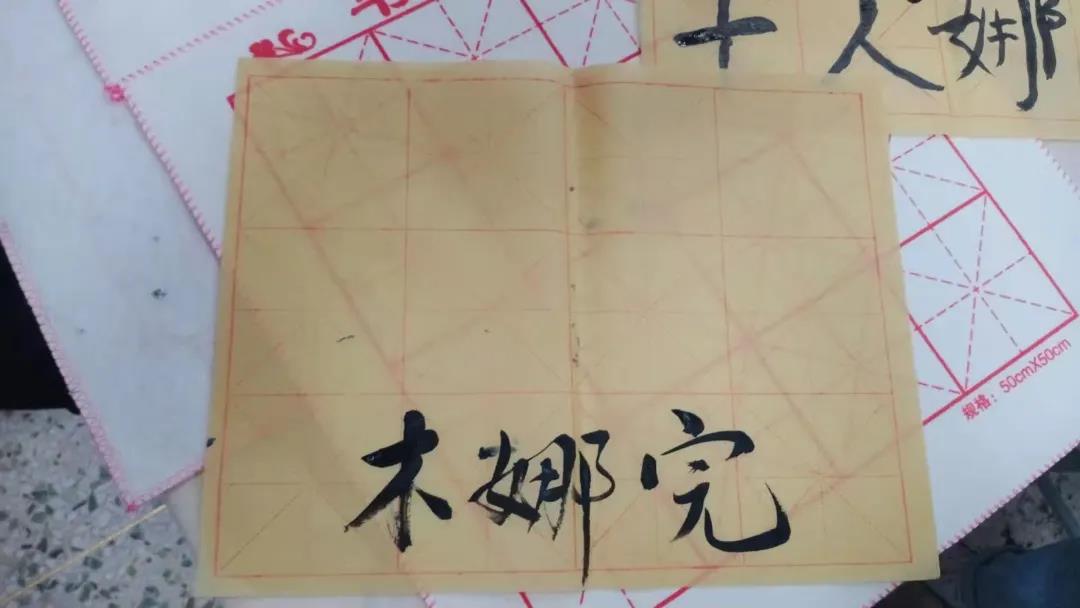 十人娜
木娜完
规格：50cmX50cm